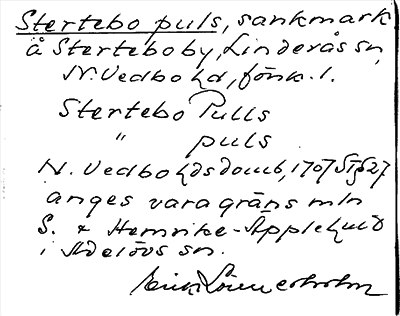 Stertebo puls, sankmark
å Sterteboby, Linderås sn,
N. Vedbo hd, Jönk. l.
Stertebo Pulls
" puls
N. Vedbo hdsdomb, 1707 St § 27
anges vara gräns mln
S. & Hemrike-Äpplehult
i Adelövs sn.
Erik Lönnerholm